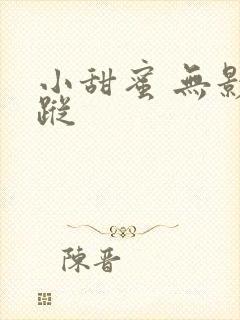 小甜蜜 無影
蹤
陳晋